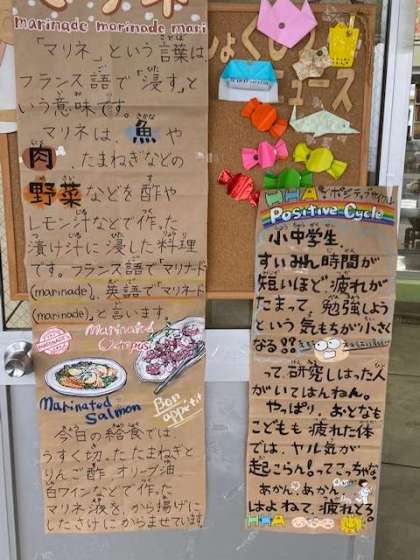 マリネ
marinade marinade mari
「マリネ」という言葉は
フランス語で「浸す」と
いう意味です。
マリネは、魚や
肉、たまねぎなどの
野菜などを酢や
レモン汁などで作った
漬け汁に浸した料理
です。フランス語で「マリナード
(marinade)、英語で「マリネード
(marinade)」と言います。
Marinated
Octopus
Marinated
Salmon
Bon
appétit
今日の給食では
うすく切ったたまねぎと
りんご酢、オリーブ油
白ワインなどで作った
マリネ液を、から揚げに
したさけにからませています
しょくいく
ニュース
ポジティブサイクル
Positive Cycle
小中学生
すいみん時間が
短いほど疲れが
たまって、勉強しよう
という気もちが小さく
なる??
って、研究しはった人
がいてはんねん。
やっぱり、おとなも
こどもも疲れた体
では、ヤル気が
起こらん!ってこっちゃな
あかん、あかん。
はよねて、疲れとる。